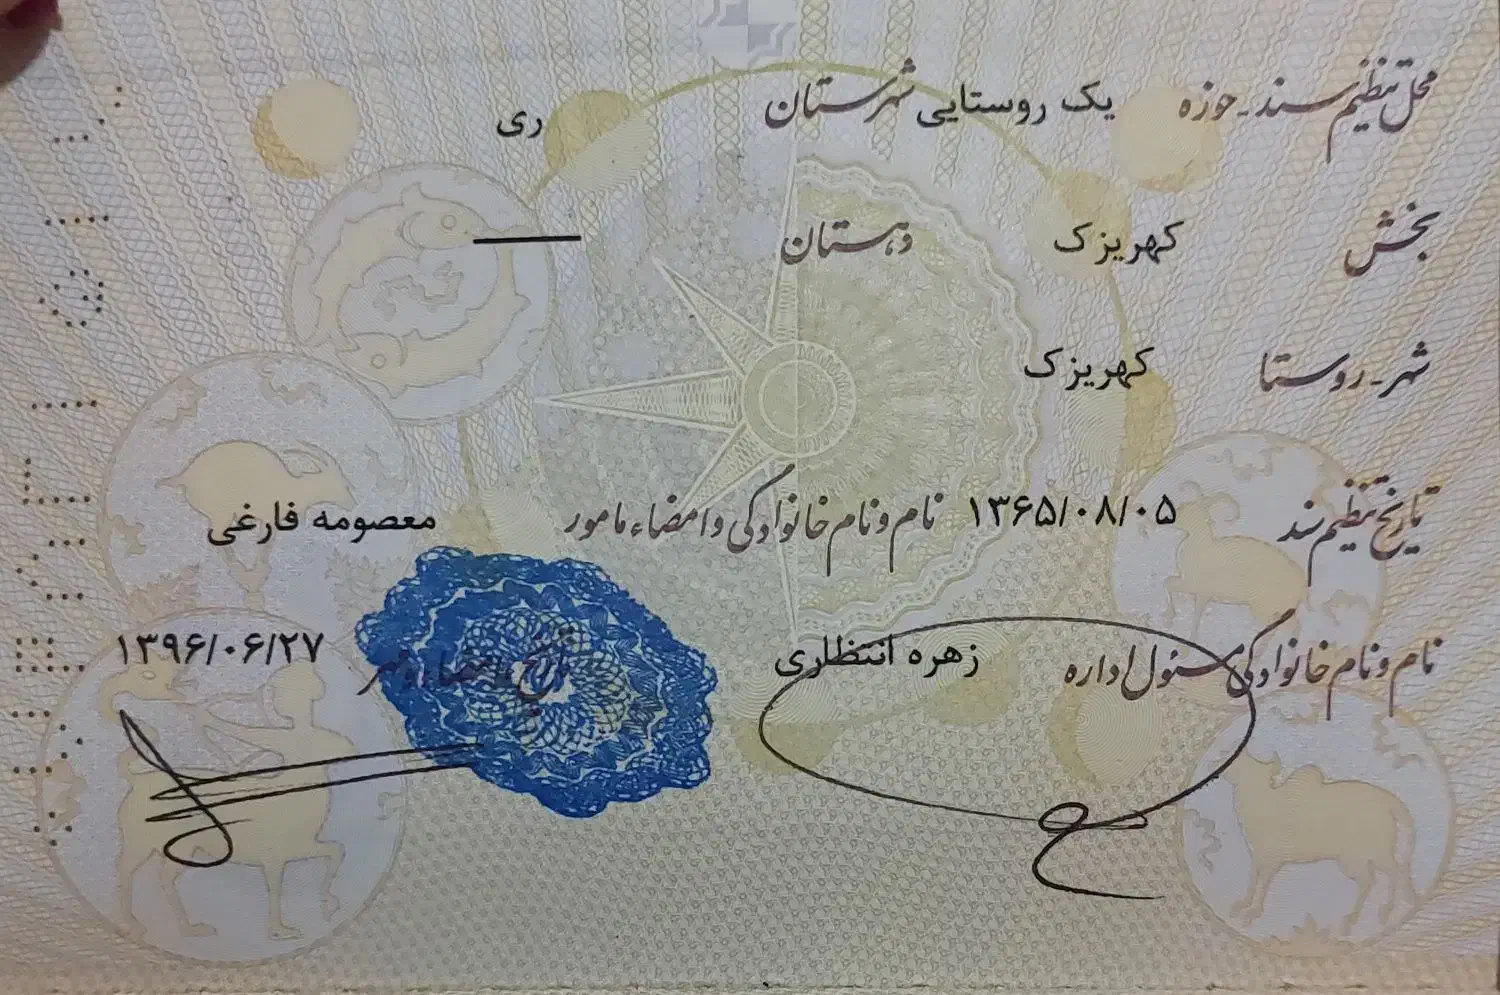 محل تنظیم سند - حوزه یک روستایی شهرستان ری
بخش کهریزک دهستان —
شهر - روستا کهریزک
تاریخ تنظیم سند ۱۳۶۵/۰۸/۰۵ نام و نام خانوادگی و امضاء مامور معصومه فارغی
نام و نام خانوادگی مسئول اداره زهره انتظاری تاریخ، امضاء و مهر ۱۳۹۶/۰۶/۲۷